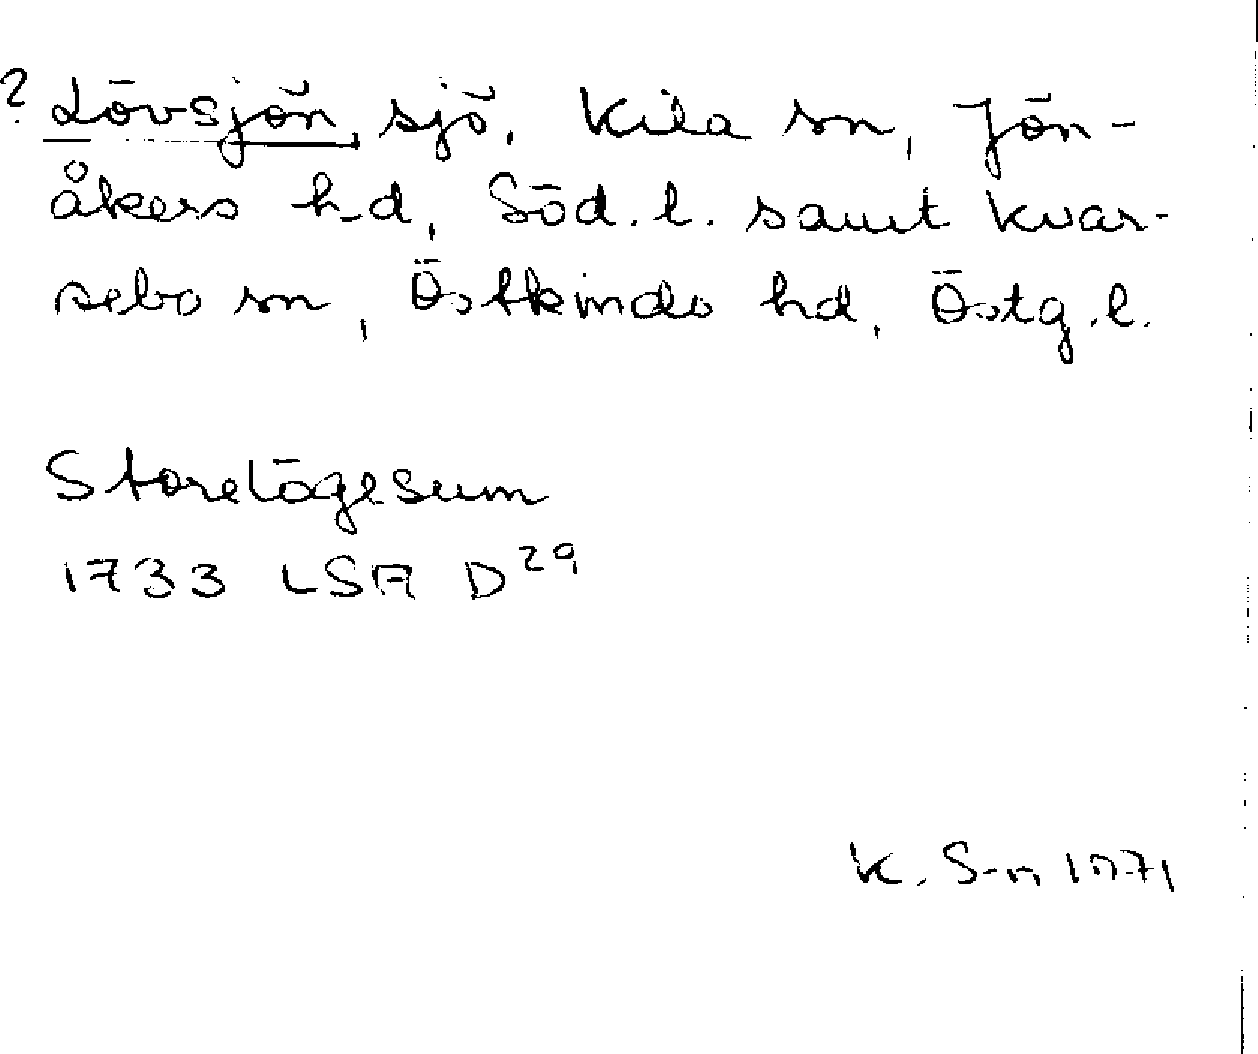 ? Lövsjön, sjö, Kila sn, Jön-
åkers hd, Söd. l. samt Kvar-
sebo sn, Östkinds hd, Östg. l.
Storelögesum
1733 LSA D29
K. S-n 1971